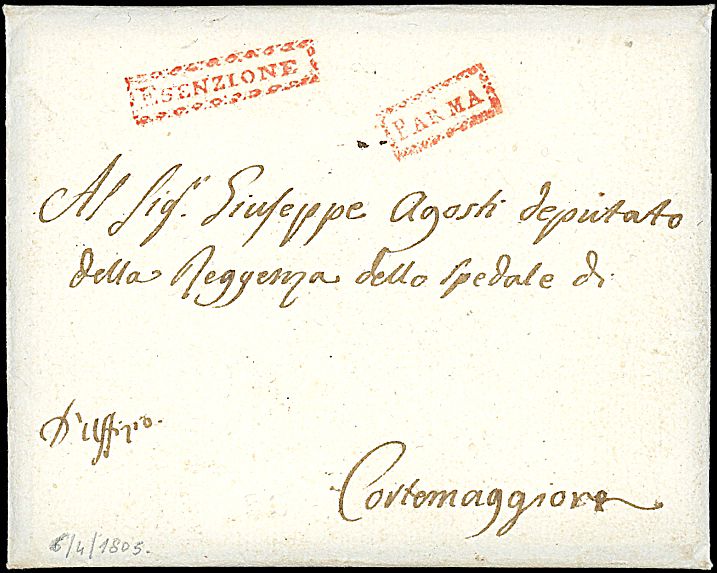 ESENZIONE
PARMA
Al Sig.r Giuseppe Agosti deputato
della Reggenza dello Spedale di
D'Uffizio.
Cortemaggiore
6/4/1805.